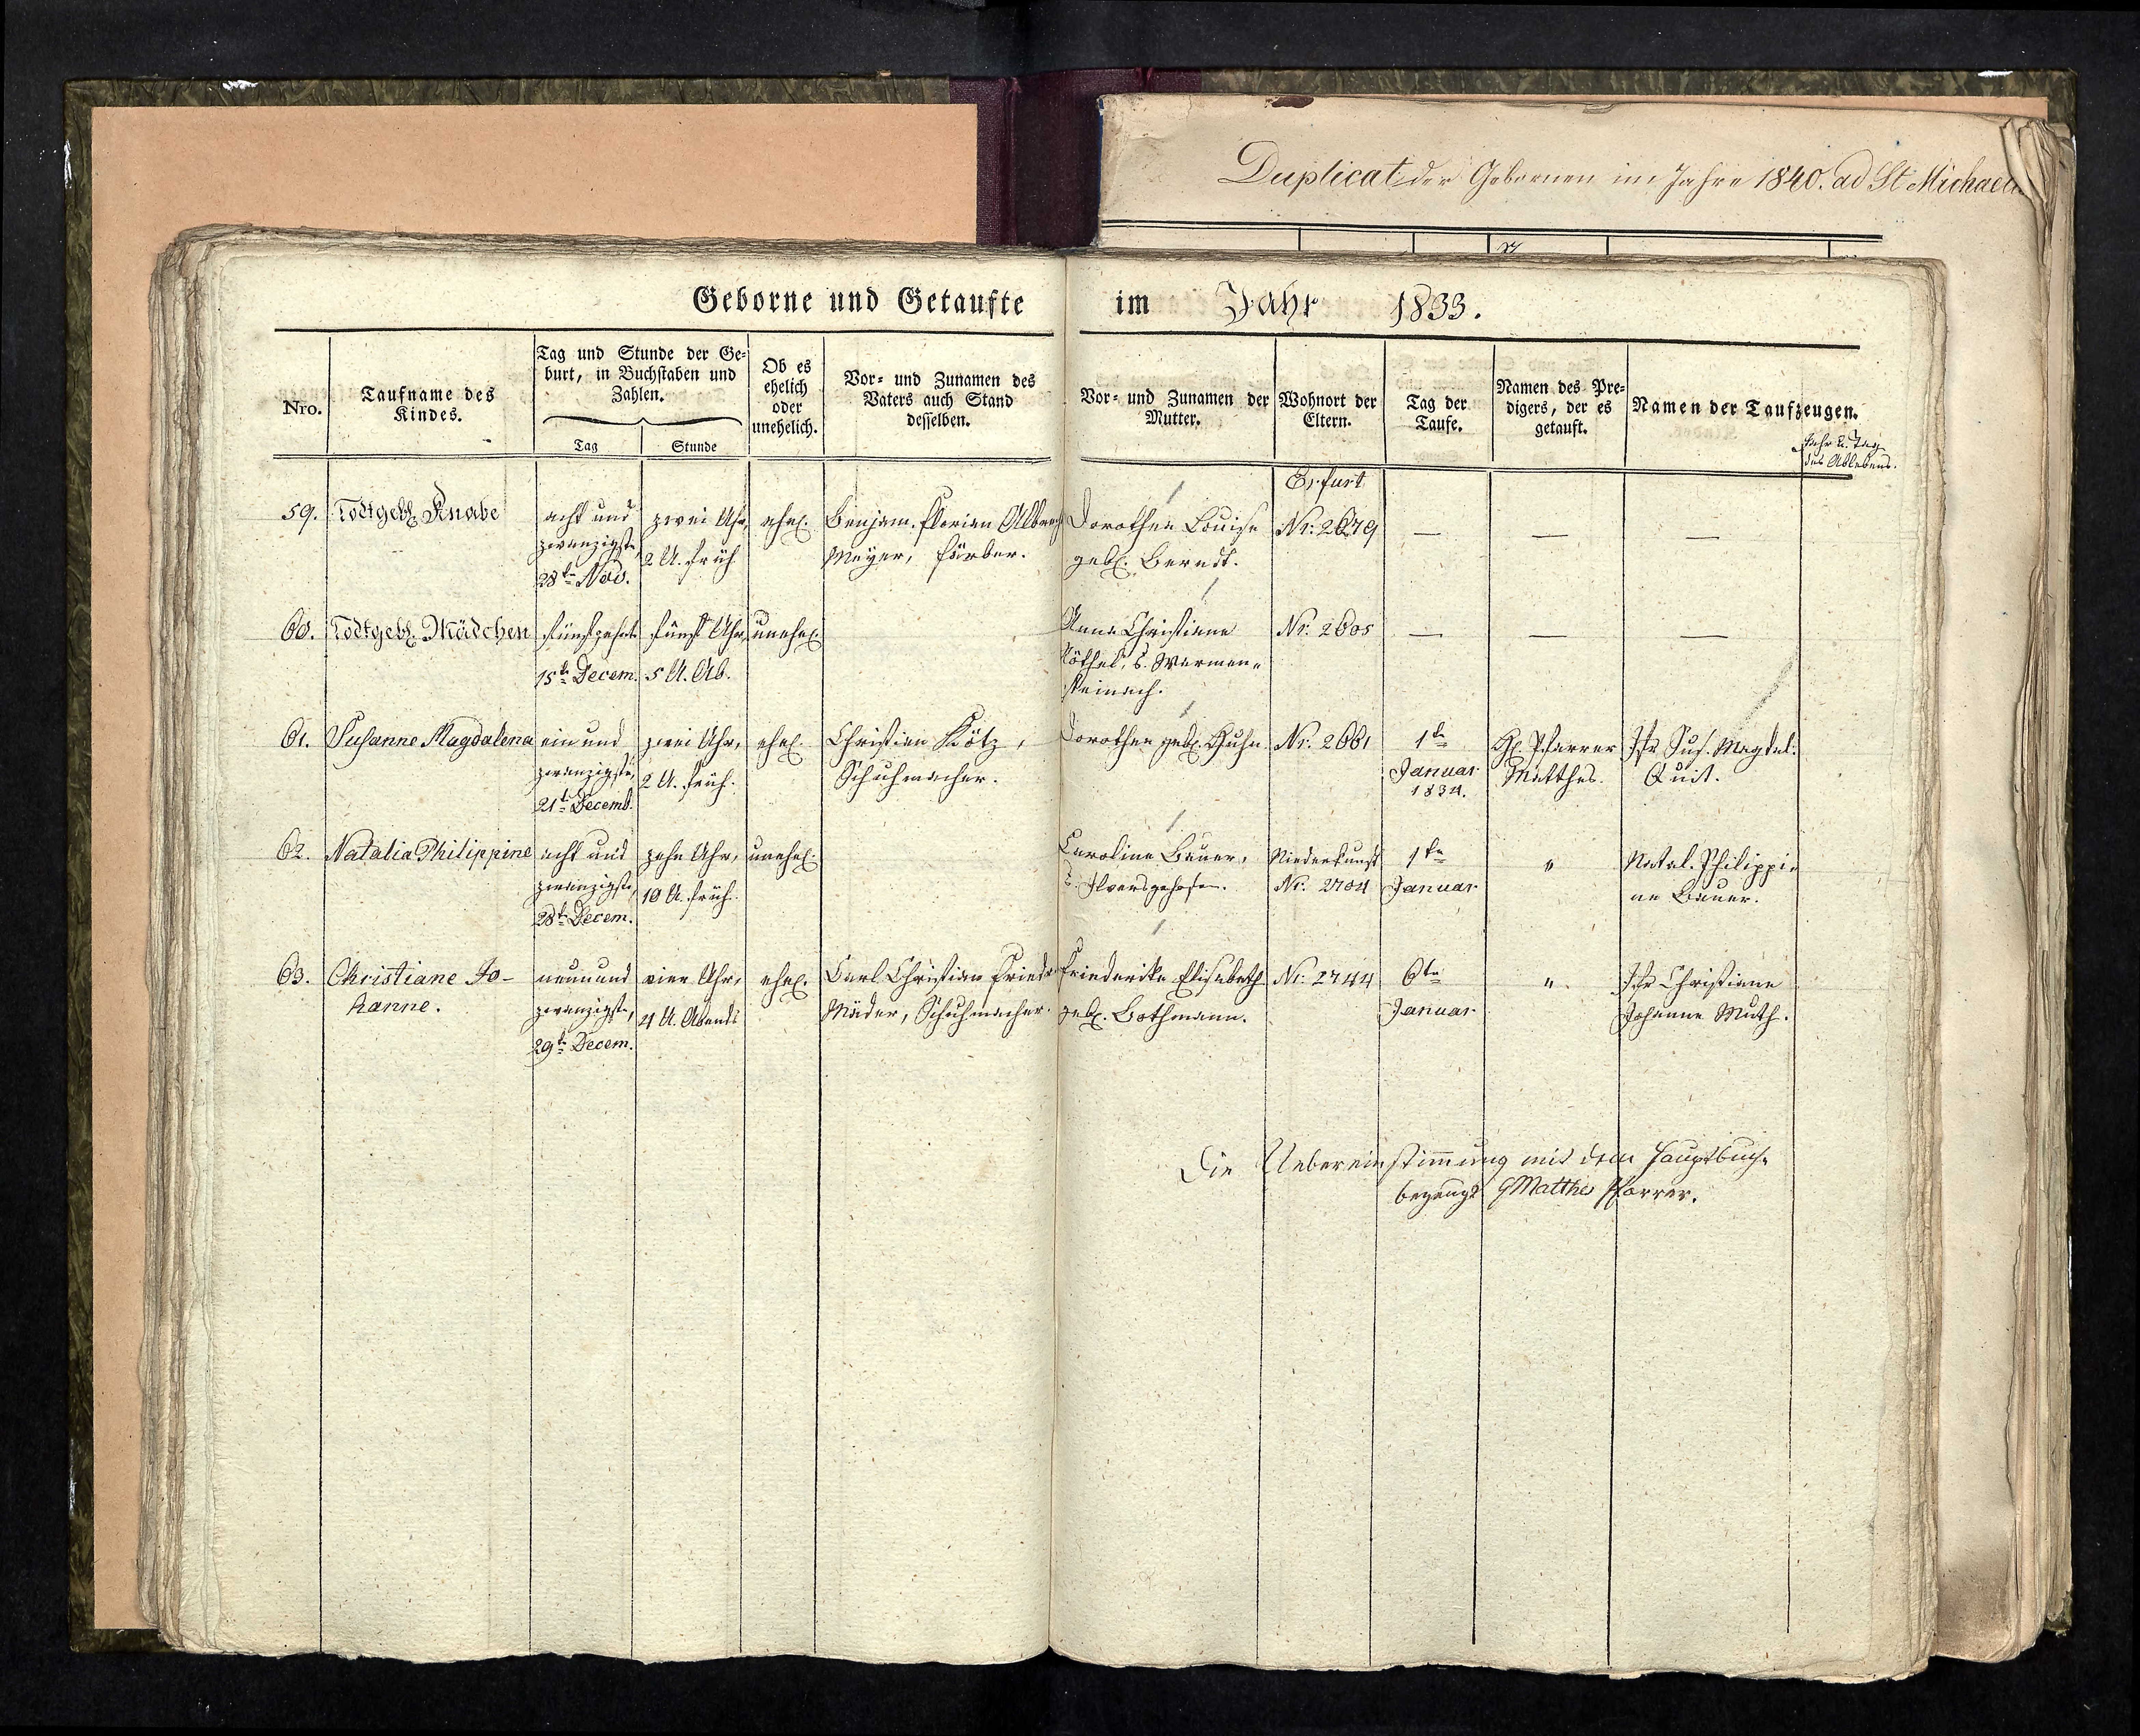 Duplicat der Gebornen im Jahre 1840. ad St Michael
Geborne und Getaufte im Jahr 1833.
Nro.
Taufname des
Kindes.
Tag und Stunde der Ge-
burt, in Buchstaben und
Zahlen.
Tag
Stunde
Ob es
ehelich
oder
unehelich.
Vor- und Zunamen des
Vaters auch Stand
desselben.
Vor- und Zunamen der
Mutter.
Wohnort der
Eltern.
Tag der
Taufe.
Namen des Pre-
digers, der es
getauft.
Namen der Taufzeugen.
Jahr u. Tag
des Ablebens.
59.
Todtgeb. Knabe
acht und
zwanzigste,
28te Nov.
zwei Uhr,
2 U. früh
ehel.
Benjam. Florian Albrecht
Meyer, Färber.
Dorothea Louise
geb. Berndt.
Erfurt
Nr: 2679
—
—
—
60.
Todtgeb. Mädchen
fünfzehnte
15te Decem.
fünf Uhr,
5 U. Ab.
unehel.
Anna Christiane
v. Warmen-
steinach.
Nr: 2605
—
—
—
61.
Susanne Magdalena
ein und
zwanzigste,
21te Decemb.
zwei Uhr,
2 U. früh.
ehel.
Christian Kötz,
Schuhmacher.
Dorothea geb. Huhn
Nr: 2661
1te
Januar
1834.
H. Pfarrer
Matthes.
Jfr Sus. Magdal.
Quit.
62.
Natalia Philippine
acht und
zwanzigste,
28te Decem.
zehn Uhr,
10 U. früh.
unehel.
Caroline Bauer,
v. Ilversgehofen.
Niederkunft
Nr: 2704
1te
Januar
"
Natal. Philippi-
ne Bauer.
63.
Christiane Jo-
hanne.
neun und
zwanzigste,
29te Decem.
vier Uhr,
4 U. Abends
ehel.
Carl Christian Friedr.
Mäder, Schuhmacher.
Friederike Elisabeth
geb. Bothmann.
Nr: 2744
6te
Januar
"
Jfr Christiane
Johanne Muth.
Die Uebereinstimmung mit dem Hauptbuche
bezeugt GMatthes Pfarrer.